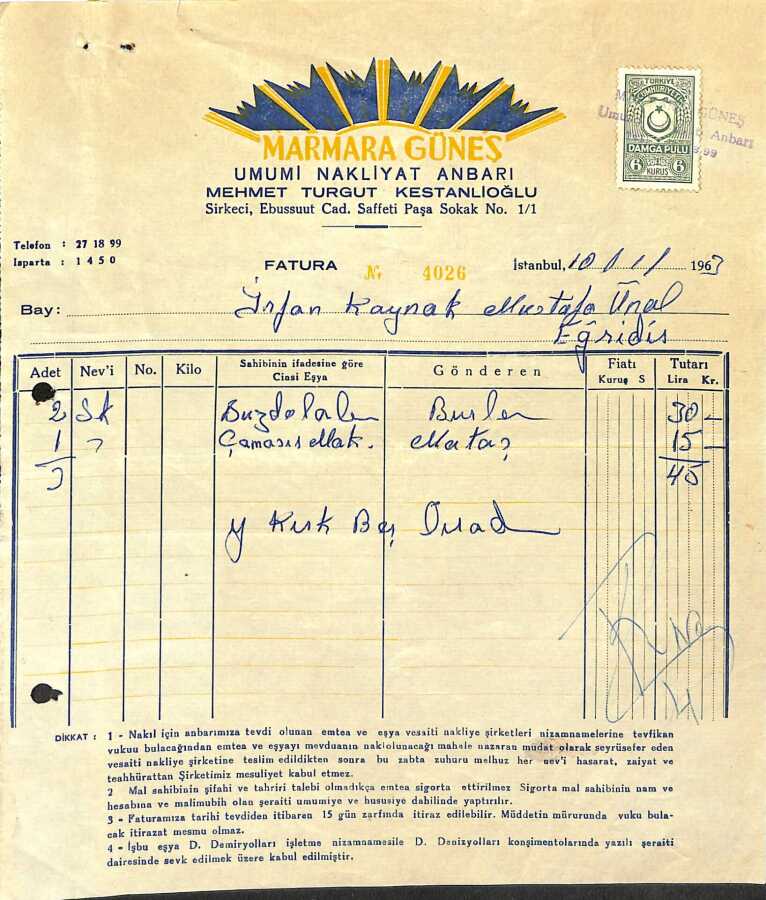 MARMARA GÜNEŞ
UMUMİ NAKLİYAT ANBARI
MEHMET TURGUT KESTANLIOĞLU
Sirkeci, Ebussuut Cad. Saffeti Paşa Sokak No. 1/1
TÜRKİYE
CUMHURİYETİ
DAMGA PULU
6 6
KURUŞ
GÜNEŞ
Anbarı
Telefon : 27 18 99
Isparta : 1 4 5 0
FATURA № 4026 İstanbul, 10/11/1963
Bay: İrfan Kaynak Mustafa Ünal
Eğridis
Adet Nev'i No. Kilo Sahibinin ifadesine göre Cinsi Eşya Gönderen Fiatı Kuruş S Tutarı Lira Kr.
2 Sk Buzdolabı 30 —
1 " Çamaşır Mak. Mataş 15 —
3 45
Y Kırk Beş
DİKKAT : 1 - Nakıl için anbarımıza tevdi olunan emtea ve eşya vesaiti nakliye şirketleri nizamnamelerine tevfikan
vukuu bulacağından emtea ve eşyayı mevduanın naklolunacağı mahale nazaran müdat olarak seyrüsefer eden
vesaiti nakliye şirketine teslim edildikten sonra bu zabta zuhuru melhuz her nev'i hasarat, zaiyat ve
teahhürattan Şirketimiz mesuliyet kabul etmez.
2 Mal sahibinin şifahi ve tahriri talebi olmadıkça emtea sigorta ettirilmez Sigorta mal sahibinin nam ve
hesabına ve malimubih olan şeraiti umumiye ve hususiye dahilinde yaptırılır.
3 - Faturamıza tarihi tevdiden itibaren 15 gün zarfında itiraz edilebilir. Müddetin mürurunda vuku bula-
cak itirazat mesmu olmaz.
4 - İşbu eşya D. Demiryolları işletme nizamnamesile D. Denizyolları konşimentolarında yazılı şeraiti
dairesinde sevk edilmek üzere kabul edilmiştir.